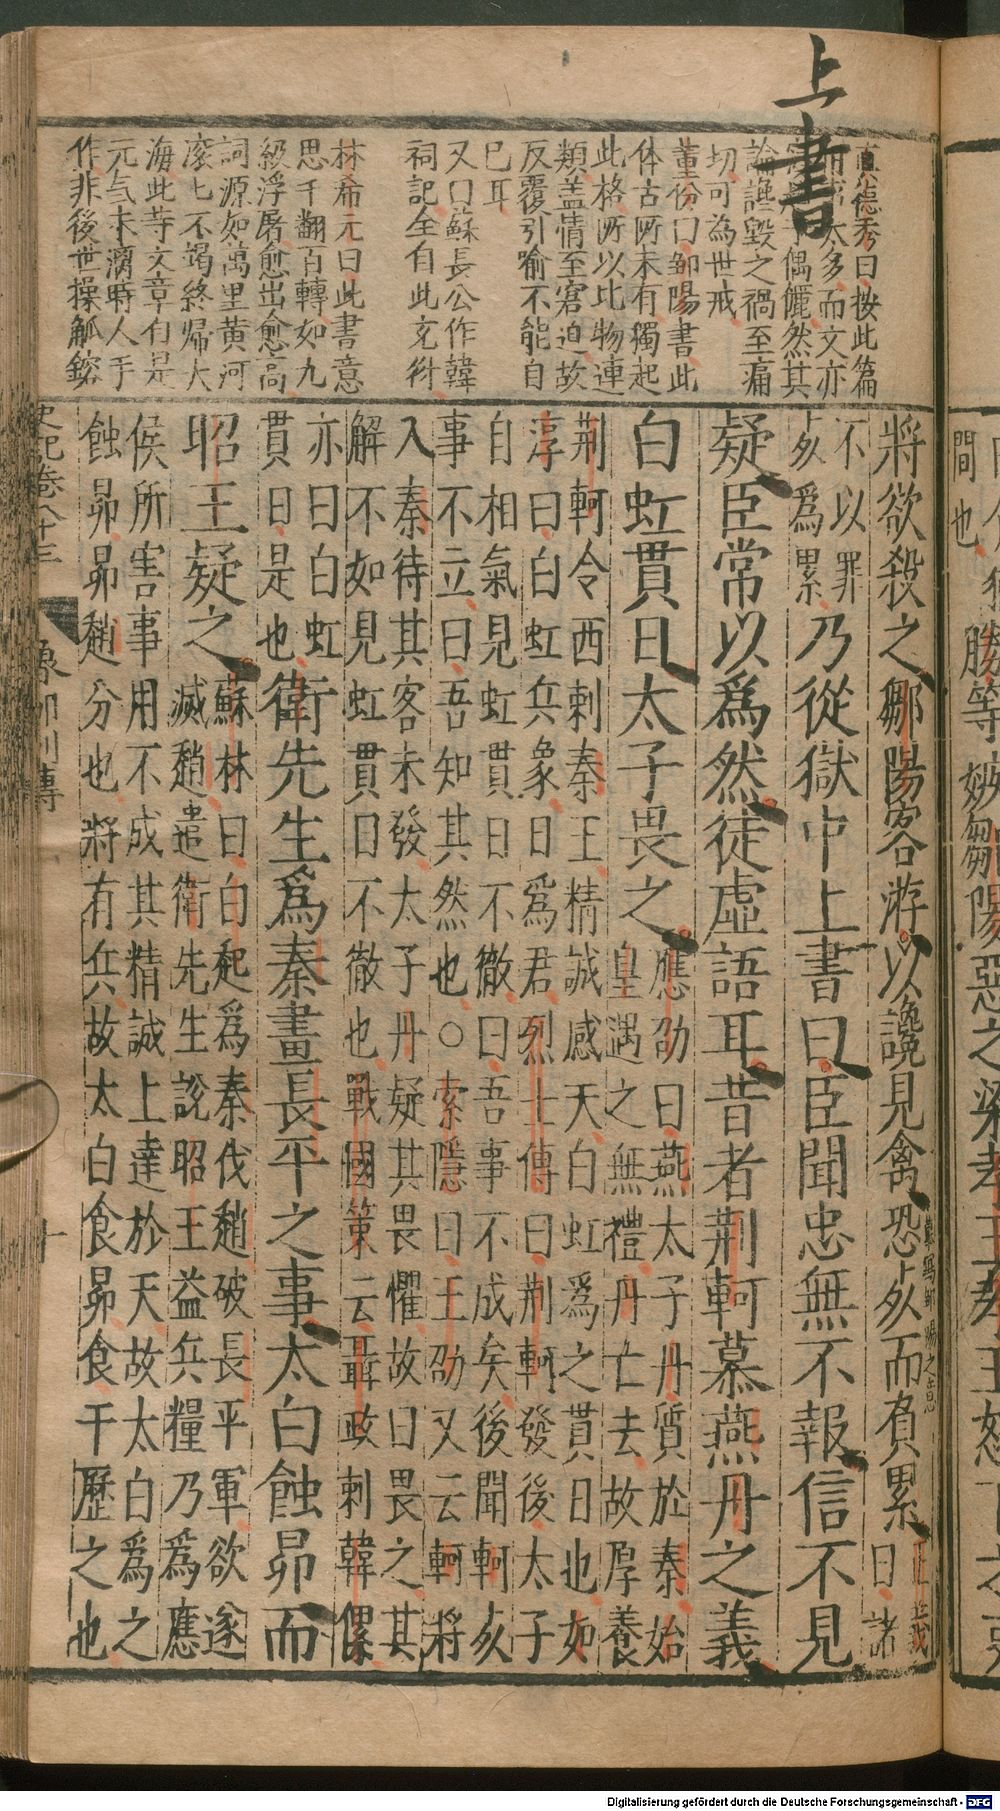 上書
真德秀曰按此篇
用事太多而文亦
偶儷然其
論讒毀之禍至痛
切可為世戒
董份曰鄒陽書此
体古所未有獨起
此格所以比物連
類盖情至窘迫故
反覆引喻不能自
已耳
又曰蘇長公作韓
祠記全自此文衍
林希元曰此書意
思千翻百轉如九
級浮屠愈出愈高
詞源如萬里黄河
滚匕不竭終歸大
海此等文章自是
元气未漓時人手
作非後世操觚鎔
將欲殺之鄒陽客游以讒見禽恐死而負累正義曰諸
不以罪
死爲累乃從獄中上書曰臣聞忠無不報信不見
疑臣常以爲然徒虛語耳昔者荆軻慕燕丹之義
白虹貫日太子畏之應劭曰燕太子丹質於秦始
皇遇之無禮丹亡去故厚養
荆軻令西刺秦王精誠感天白虹爲之貫日也如
淳曰白虹兵象日爲君烈士傳曰荆軻發後太子
自相氣見虹貫日不徹曰吾事不成矣後聞軻死
事不立曰吾知其然也○索隱曰王劭又云軻將
入秦待其客未發太子丹疑其畏懼故曰畏之其
解不如見虹貫日不徹也戰國策云聶政刺韓傫
亦曰白虹
貫日是也衛先生爲秦畫長平之事太白蝕昴而
昭王疑之蘇林曰白起爲秦伐趙破長平軍欲遂
滅趙遣衛先生說昭王益兵糧乃爲應
侯所害事用不成其精誠上達於天故太白爲之
蝕昴昴趙分也將有兵故太白食昴食干歷之也
史記卷八十三
魯鄒列傳
十
間也
勝等嫉鄒陽惡之梁孝王孝王怒下
Digitalisierung gefördert durch die Deutsche Forschungsgemeinschaft - DFG